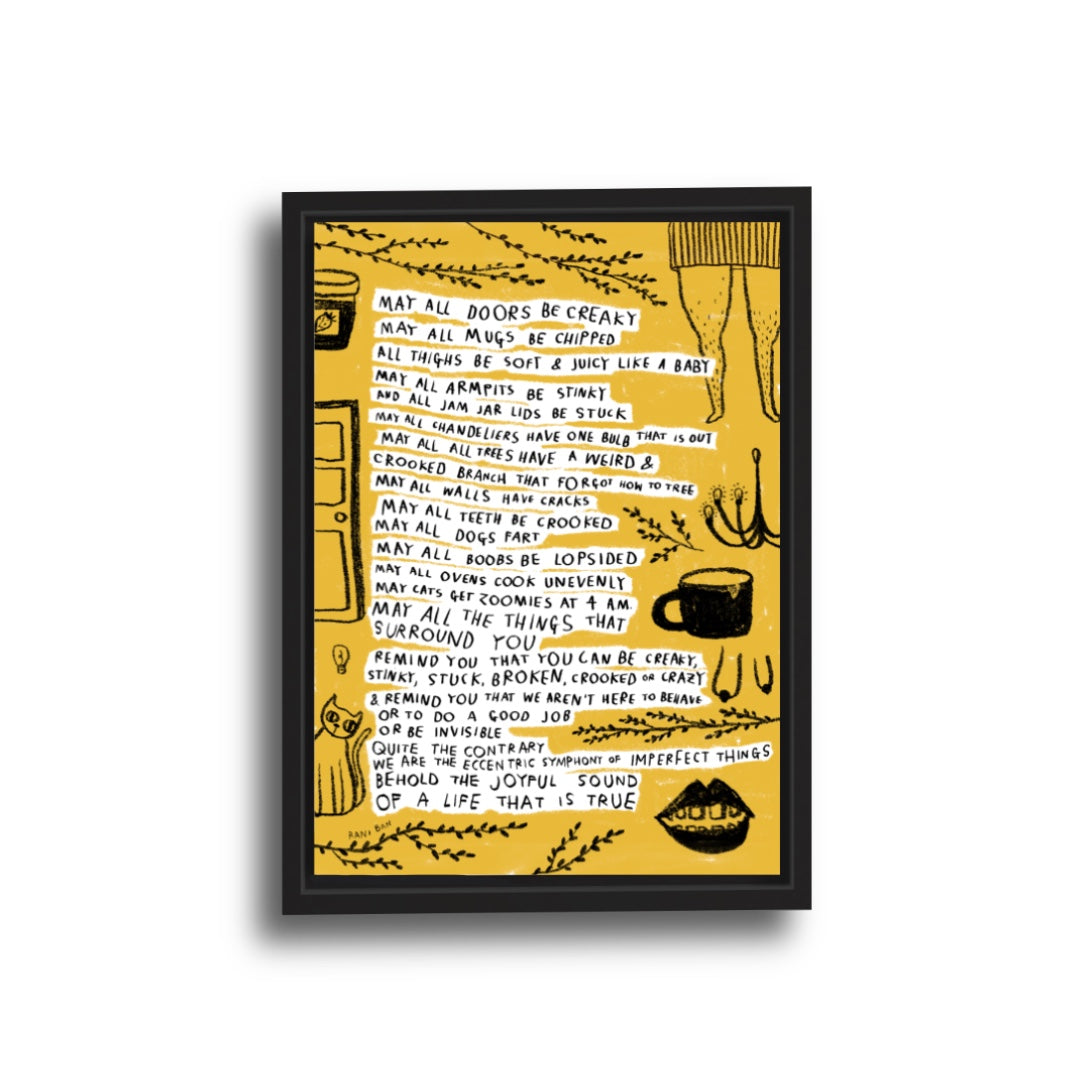 MAY ALL DOORS BE CREAKY
MAY ALL MUGS BE CHIPPED
ALL THIGHS BE SOFT & JUICY LIKE A BABY
MAY ALL ARMPITS BE STINKY
AND ALL JAM JAR LIDS BE STUCK
MAY ALL CHANDELIERS HAVE ONE BULB THAT IS OUT
MAY ALL ALL TREES HAVE A WEIRD &
CROOKED BRANCH THAT FORGOT HOW TO TREE
MAY ALL WALLS HAVE CRACKS
MAY ALL TEETH BE CROOKED
MAY ALL DOGS FART
MAY ALL BOOBS BE LOPSIDED
MAY ALL OVENS COOK UNEVENLY
MAY CATS GET ZOOMIES AT 4 AM
MAY ALL THE THINGS THAT
SURROUND YOU
REMIND YOU THAT YOU CAN BE CREAKY,
STINKY, STUCK, BROKEN, CROOKED OR CRAZY
& REMIND YOU THAT WE AREN'T HERE TO BEHAVE
OR TO DO A GOOD JOB
OR BE INVISIBLE
QUITE THE CONTRARY
WE ARE THE ECCENTRIC SYMPHONY OF IMPERFECT THINGS
BEHOLD THE JOYFUL SOUND
OF A LIFE THAT IS TRUE
RANI BAN